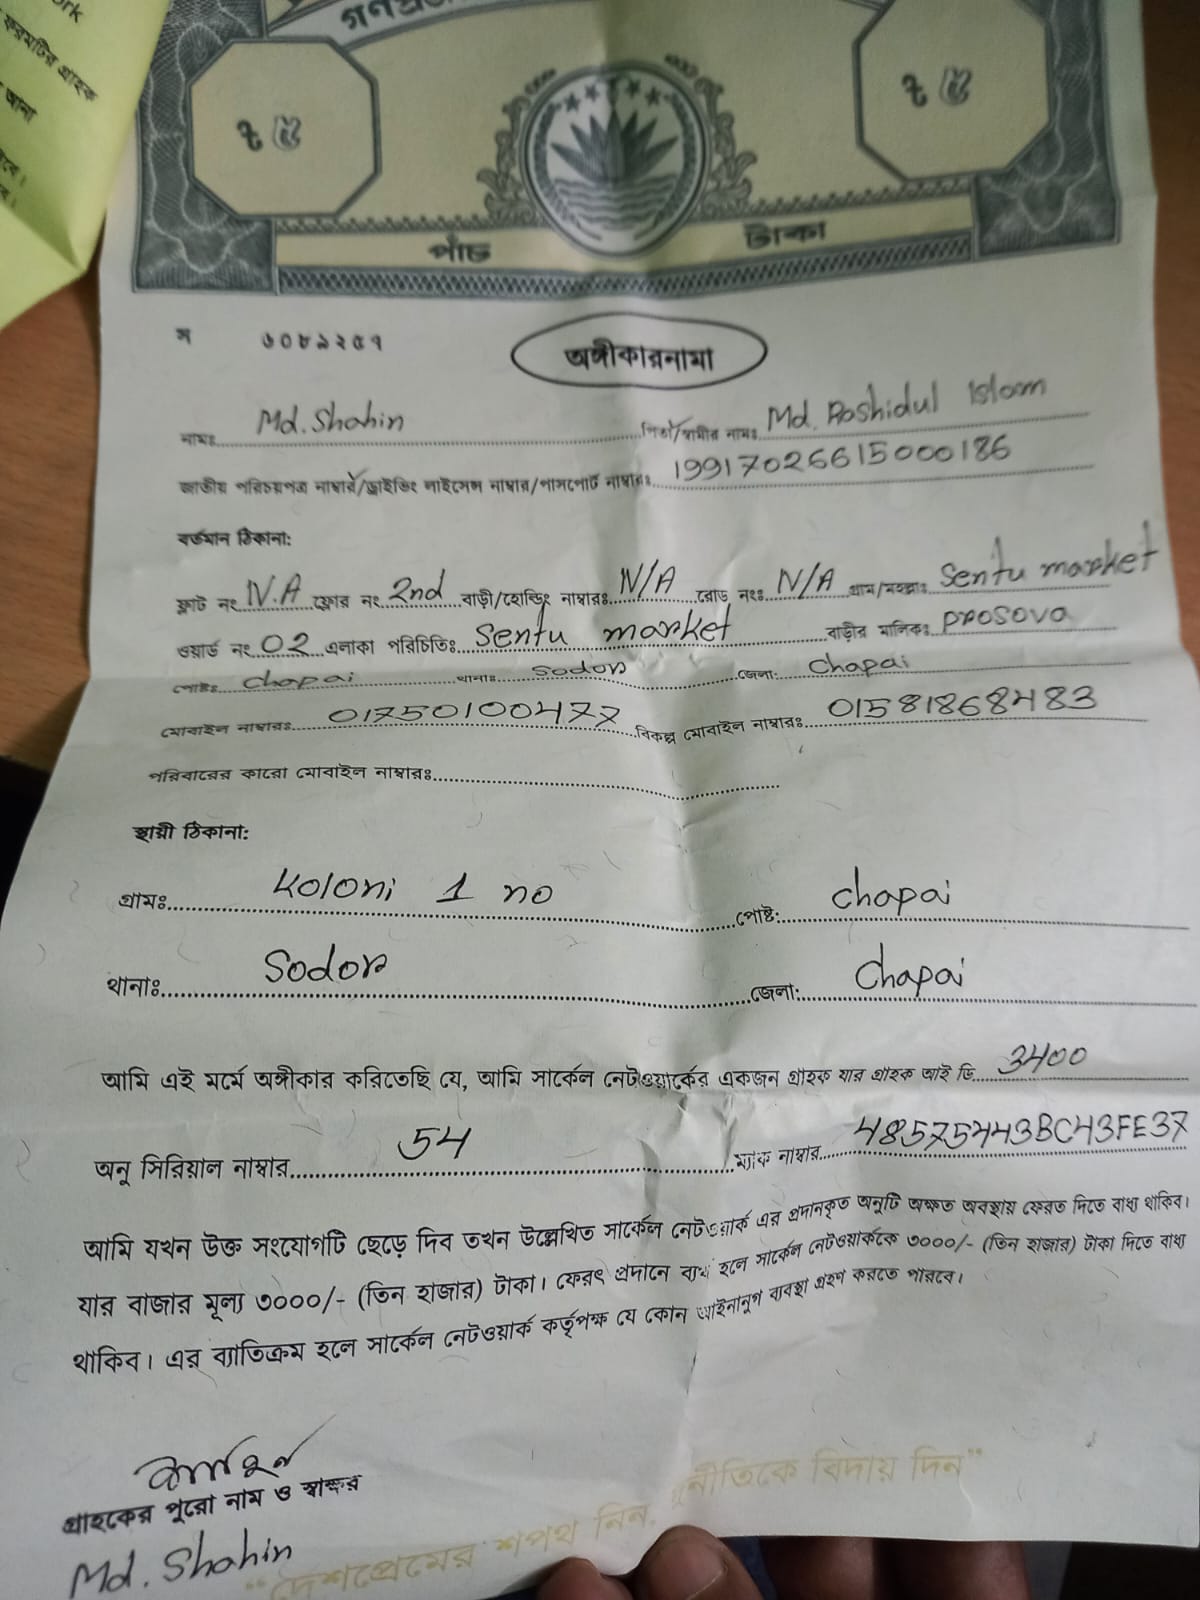 ork
ফরমটির গ্রাহক
৳ ৫
৳ ৫
পাঁচ টাকা
স ৬০৮৯২৫৭
অঙ্গীকারনামা
নামঃ Md. Shahin পিতা/স্বামীর নামঃ Md. Rashidul Islam
জাতীয় পরিচয়পত্র নাম্বার/ড্রাইভিং লাইসেন্স নাম্বার/পাসপোর্ট নাম্বারঃ 19917026615000186
বর্তমান ঠিকানা:
ফ্লাট নং N.A ফ্লোর নং 2nd বাড়ী/হোল্ডিং নাম্বারঃ N/A রোড নংঃ N/A গ্রাম/মহল্লাঃ Sentu market
ওয়ার্ড নং 02 এলাকা পরিচিতিঃ Sentu market বাড়ীর মালিকঃ Prosova
পোষ্টঃ Chapai থানাঃ Sodor জেলা: Chapai
মোবাইল নাম্বারঃ 01750100477 বিকল্প মোবাইল নাম্বারঃ 01581868483
পরিবারের কারো মোবাইল নাম্বারঃ
স্থায়ী ঠিকানা:
গ্রামঃ Koloni 1 no পোষ্ট: Chapai
থানাঃ Sodor জেলা: Chapai
আমি এই মর্মে অঙ্গীকার করিতেছি যে, আমি সার্কেল নেটওয়ার্কের একজন গ্রাহক যার গ্রাহক আই ডি 3400
অনু সিরিয়াল নাম্বার 54 ম্যাক নাম্বার 48575443BC43FE37
আমি যখন উক্ত সংযোগটি ছেড়ে দিব তখন উল্লেখিত সার্কেল নেটওয়ার্ক এর প্রদানকৃত অনুটি অক্ষত অবস্থায় ফেরত দিতে বাধ্য থাকিব।
যার বাজার মূল্য ৩০০০/- (তিন হাজার) টাকা। ফেরৎ প্রদানে ব্যর্থ হলে সার্কেল নেটওয়ার্ককে ৩০০০/- (তিন হাজার) টাকা দিতে বাধ্য
থাকিব। এর ব্যাতিক্রম হলে সার্কেল নেটওয়ার্ক কর্তৃপক্ষ যে কোন আইনানুগ ব্যবস্থা গ্রহণ করতে পারবে।
গ্রাহকের পুরো নাম ও স্বাক্ষর
Md. Shahin
"দেশপ্রেমের শপথ নিন, নীতিকে বিদায় দিন"